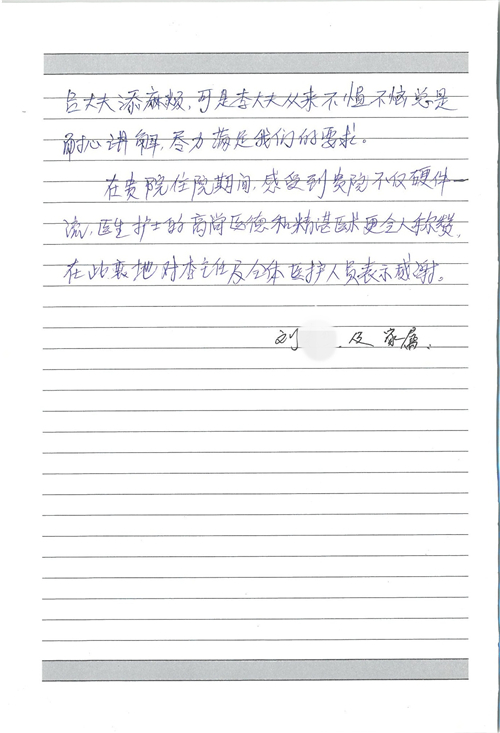 给大夫添麻烦,可是李大夫从来不愠不恼总是
耐心讲解,尽力满足我们的要求。
在贵院住院期间,感受到贵院不仅硬件一
流,医生护士的高尚医德和精湛医术更令人称赞,
在此衷地对李主任及全体医护人员表示感谢。
刘 及家属.